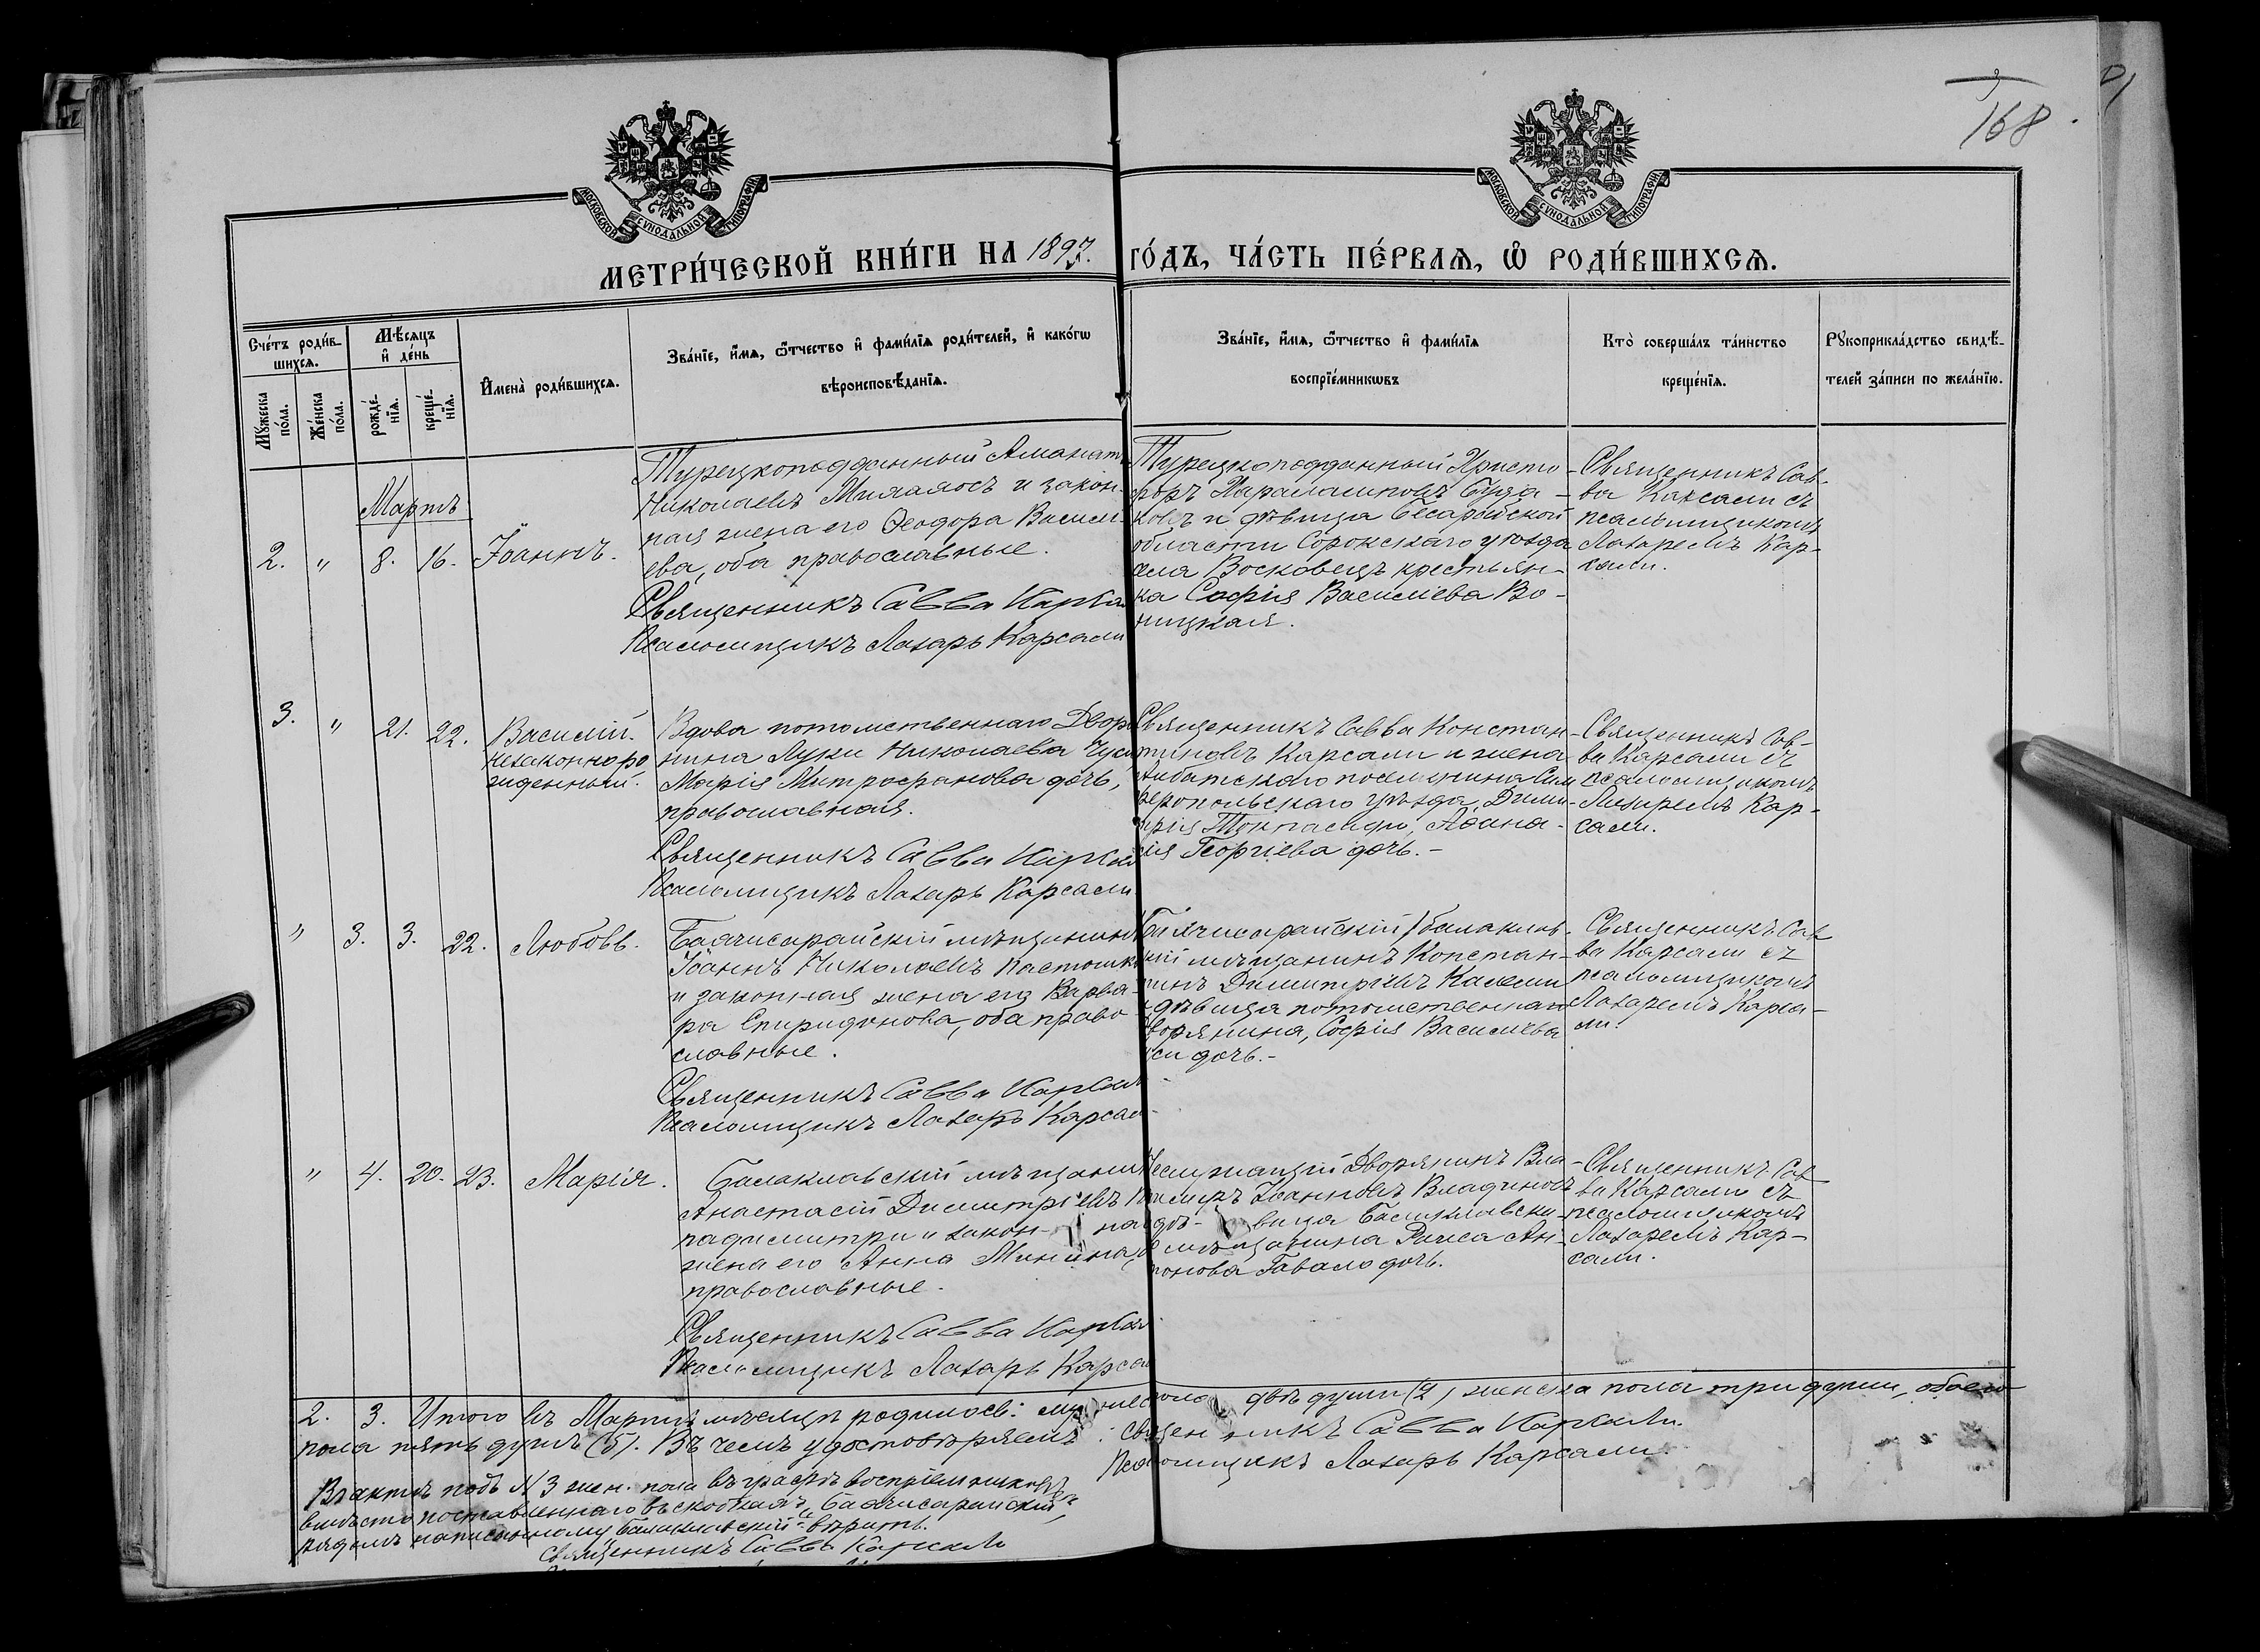 168.
МОСКОВСКОЙ СѴНОДАЛЬНОЙ ТИПОГРАФІИ
МОСКОВСКОЙ СѴНОДАЛЬНОЙ ТИПОГРАФІИ
МЕТРИ́ЧЕСКОЙ КНИ́ГИ НА 1897. ГО́ДЪ, ЧА́СТЬ ПЕ́РВАѦ, Ѡ҆ РОДИ́ВШИХСѦ.
Сче́тъ роди́в-
шихсѧ.
Мꙋжеска по́ла.
Же́нска по́ла.
Мѣ́сѧцъ
и҆ де́нь
рожде́-
нїѧ.
креще́-
нїѧ.
И҆мена̀ роди́вшихсѧ.
Зва́нїе, и҆́мѧ, ѻ҆́тчество и҆ фами́лїѧ роди́телей, и҆ како́гѡ
вѣроисповѣ́данїѧ.
Зва́нїе, и҆́мѧ, ѻ҆́тчество и҆ фами́лїѧ
воспрїе́мникѡвъ
Кто̀ соверша́лъ та́инство
креще́нїѧ.
Рꙋкоприкла́дство свидѣ́-
телей за́писи по жела́нїю.
Мартъ
2. " 8. 16. Іоаннъ.
Турецкоподданный Аманатъ
Николаевъ и закон-
ная жена его Ѳеодора Василі-
ева, оба православные.
Священникъ Савва Карса
Псаломщикъ Лазарь Карсали
Турецкоподданный Христо-
форъ Харалампіевъ
ковъ и дѣвица Бесарабской
области Сорокскаго уѣзда
села Восковецъ крестьян-
ка Софія Василіева Во-
ницкая.
Священникъ Сав-
ва Карсали съ
псаломщикомъ
Лазаремъ Кар-
сали.
3. " 21. 22. Василій.
незаконноро
жденный.
Вдова потомственнаго Двор
нина Луки Николаева
Марія Митрофанова дочь,
православная.
Священникъ Савва Карсал
Псаломщикъ Лазарь Карсали
Священникъ Савва Констан-
тиновъ Карсали и жена
поселянина Сим
феропольскаго уѣзда, Дими-
трія Аѳана-
сія Георгіева дочь.-
Священникъ Сав-
ва Карсали съ
псаломщикомъ
Лазаремъ Кар-
сали.
" 3. 3. 22. Любовь.
Бахчисарайскій мѣщанинъ
Іоаннъ Николаевъ
и законная жена его Варва-
ра Спиридонова, оба право
славные.
Священникъ Савва Карсал
Псаломщикъ Лазарь Карсал
(Бахчисарайскій) балаклав-
скій мѣщанинъ Констан-
тинъ Димитріевъ
и дѣвица потомственнаго
дворянина, Софія Василіева
дочь.-
Священникъ Сав
ва Карсали съ
псаломщикомъ
Лазаремъ Карса-
ли.
" 4. 20. 23. Марія.
Балаклавскій мѣщанин
Анастасій Димитріевъ
падимитри и закон- на
жена его Анна Минина,
православные.
Священникъ Савва Карсал
Псаломщикъ Лазарь Карса
Неслужащій Дворянинъ Вла-
димиръ Іоанновъ
дѣ- вица Балаклавска-
го мѣщанина Раиса Ан-
тонова Гавало дочь.
Священникъ Сав
ва Карсали съ
псаломщикомъ
Лазаремъ Кар-
сали.
2. 3. Итого въ Мартѣ мѣсяцѣ родилось: мужеска пола двѣ души (2) женска пола три души, обоего
пола пять душъ (5). Въ чемъ удостовѣряемъ: Священникъ Савва Карсали.
Псаломщикъ Лазарь Карсали.
Въ актѣ подъ N 3 жен. пола въ графѣ воспріемниковъ
вмѣсто поставленнаго въ скобкахъ "Бахчисарайскій"
рядомъ написанному "балаклавскій" вѣрить.
Священникъ Савва Карсали